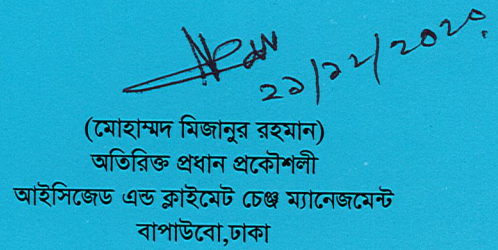 ২১/১২/২০২০
(মোহাম্মদ মিজানুর রহমান)
অতিরিক্ত প্রধান প্রকৌশলী
আইসিজেড এন্ড ক্লাইমেট চেঞ্জ ম্যানেজমেন্ট
বাপাউবো,ঢাকা